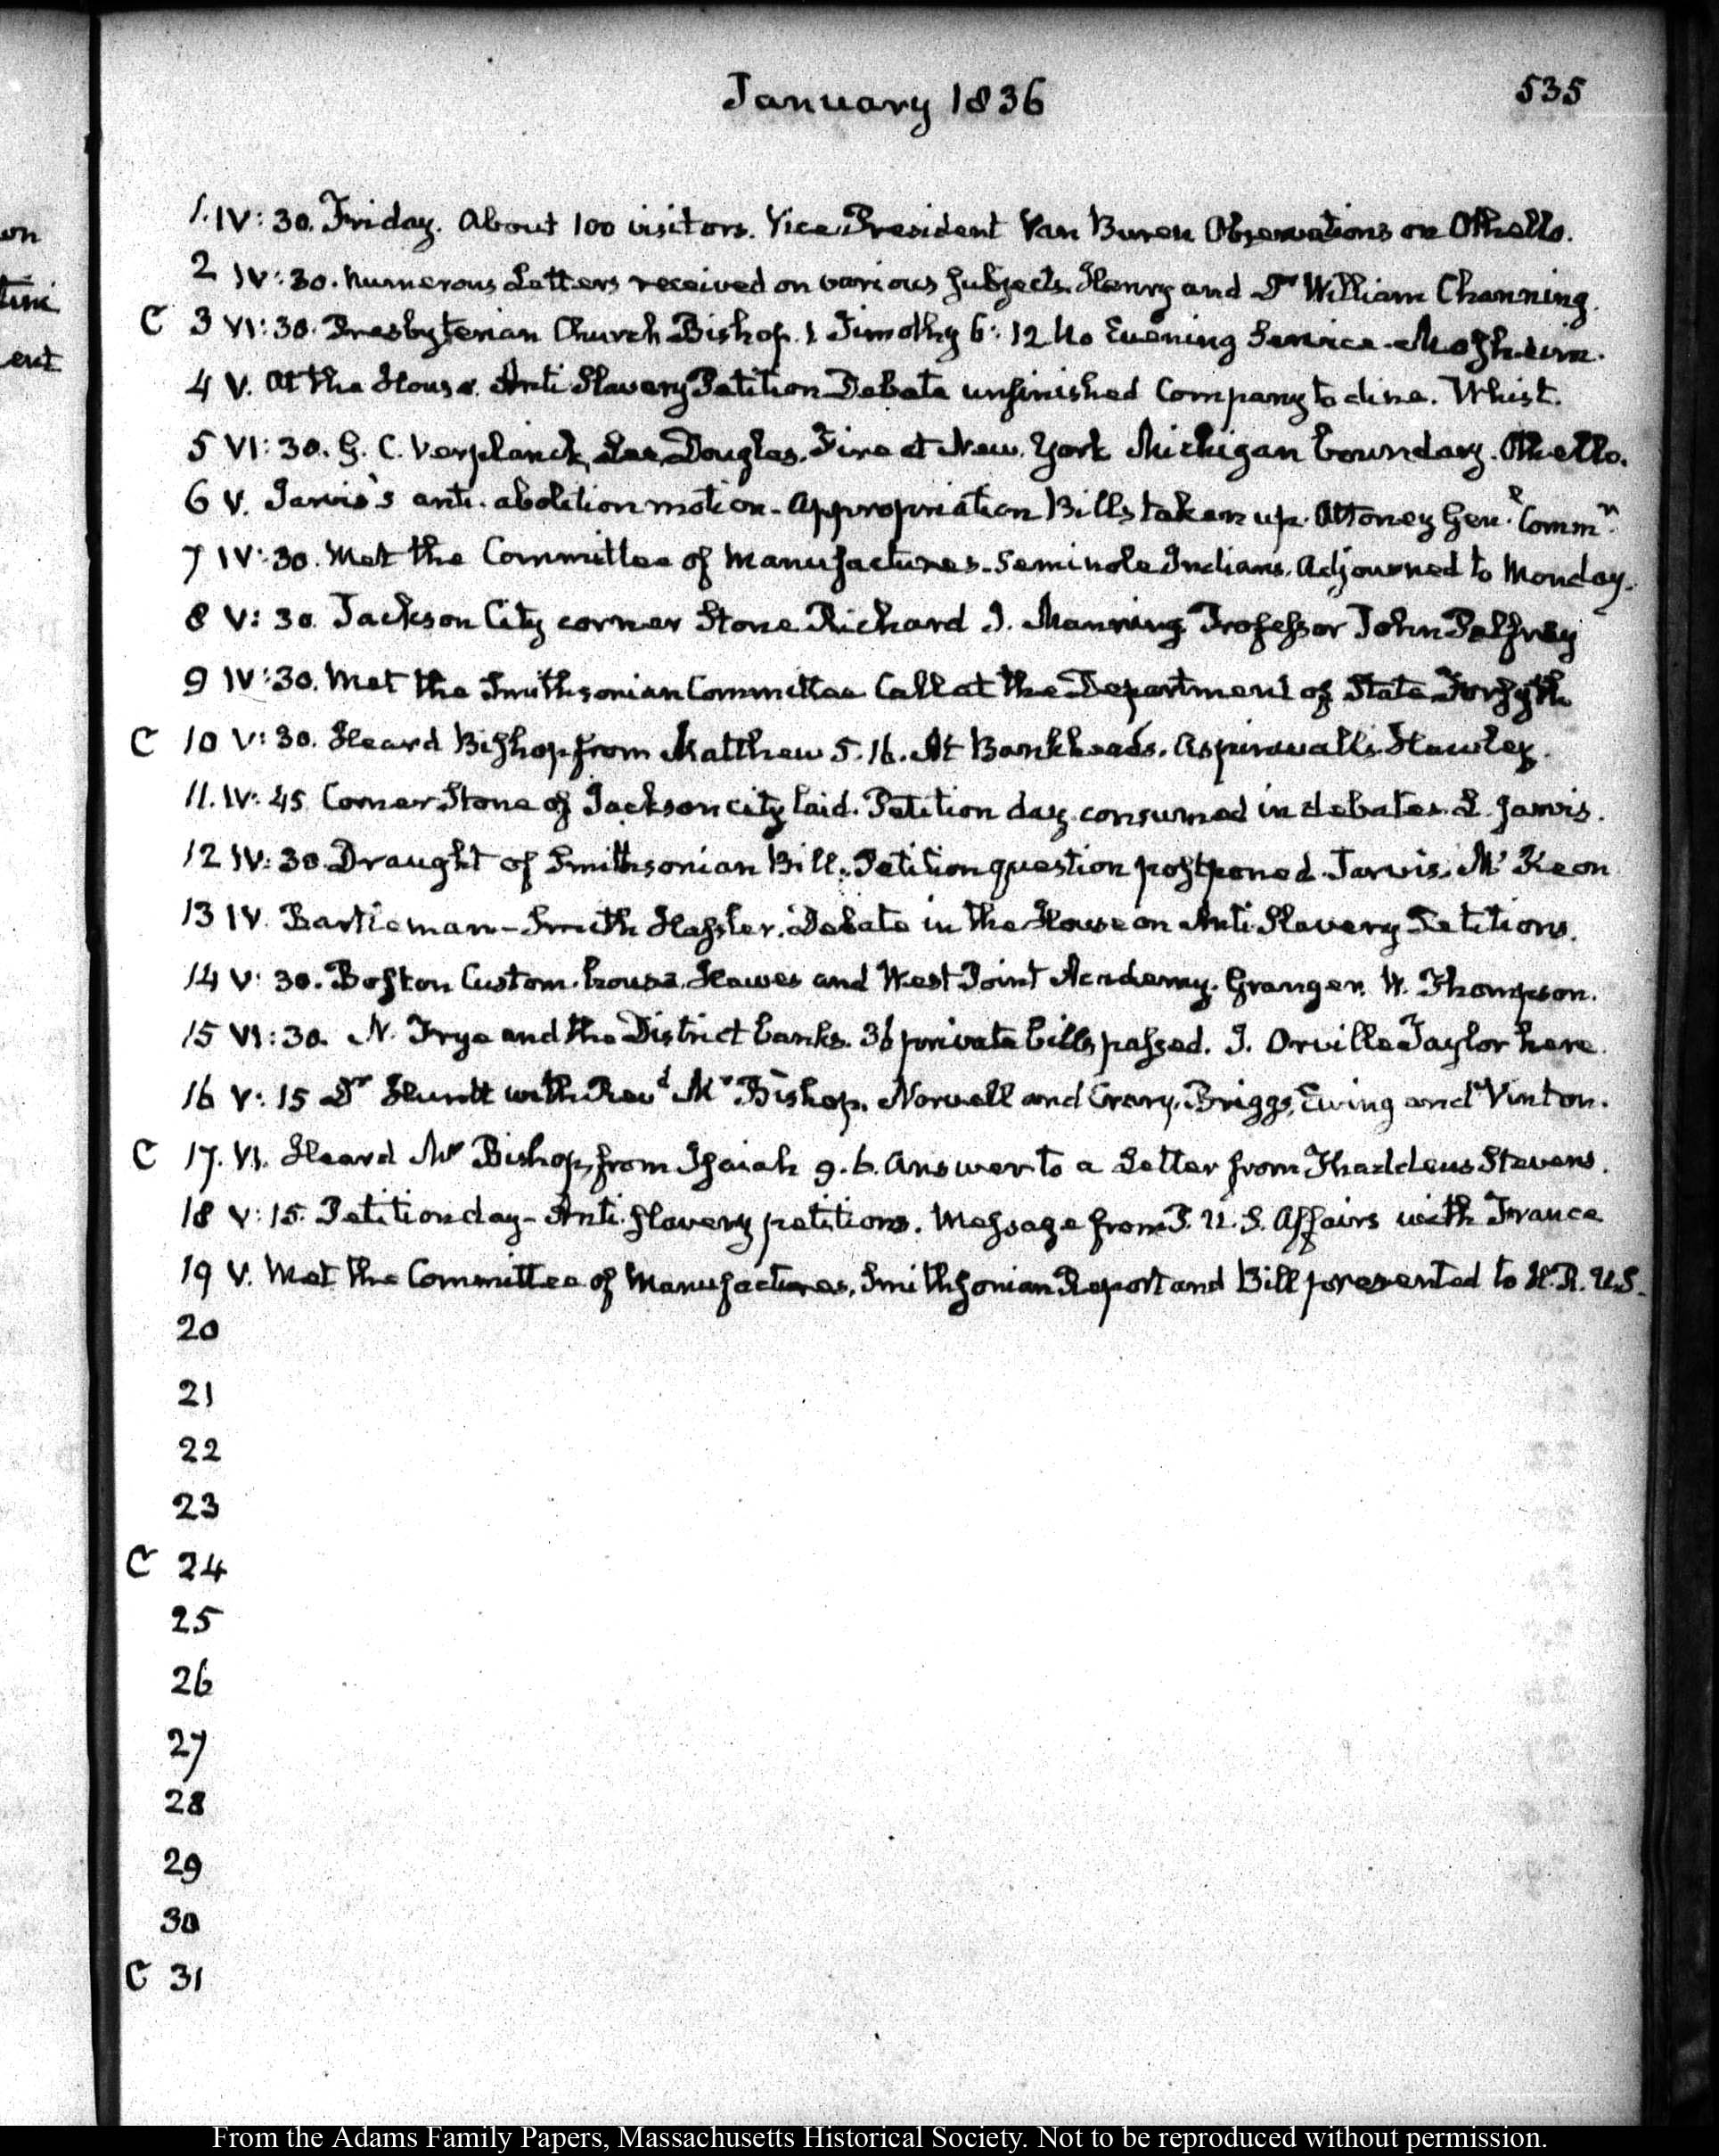 January 1836
535
on
ent
1. IV: 30. Friday. About 100 visitors. Vice President Van Buren Observations on Othello.
2 IV: 30. Numerous Letters received on various subjects. Henry and Dr William Channing.
C 3 VI: 30. Presbyterian Church Bishop. 1 Timothy 6: 12 No Evening Service. Mosheim.
4 V. At the House. Anti Slavery Petition Debate unfinished Company to dine. Whist.
5 VI: 30. G. C. Verplanck, Lee, Douglas. Fire at New. York Michigan boundary. Othello.
6 V. Jarvis's anti. abolition motion. Appropriation Bills taken up. Attorney Genl. Commn.
7 IV: 30. Met the Committee of Manufactures. Seminole Indians. Adjourned to Monday.
8 V: 30. Jackson City corner Stone Richard I. Manning Professor John Palfrey
9 IV: 30. Met the Smithsonian Committee Call at the Department of State Forsyth
C 10 V: 30. Heard Bishop from Matthew 5. 16. At Bankheads. Aspinwalls. Hawley.
11. IV: 45. Corner Stone of Jackson city laid. Petition day consumed in debates. L. Jarvis.
12 IV: 30. Draught of Smithsonian Bill. Petition question postponed Jarvis. Mc Keon
13 IV. Bartleman - Smith Hassler. Debate in the House on Anti Slavery Petitions.
14 V: 30. Boston Custom. house. Hawes and West Point Academy. Granger. W. Thompson.
15 VI: 30. N. Frye and the District banks. 36 private bills passed. J. Orville Taylor here.
16 V: 15 Dr Huntt with Revd Mr Bishop. Norvell and Crary. Briggs, Ewing and Vinton.
C 17. VI. Heard Mr Bishop, from Isaiah 9. 6. Answer to a Letter from Thaddeus Stevens.
18 V: 15. Petition day - Anti. slavery petitions. Message from P. U. S. Affairs with France
19 V. Met the Committee of Manufactures. Smithsonian Report and Bill presented to H. R. U.S.
20
21
22
23
C 24
25
26
27
28
29
30
C 31
From the Adams Family Papers, Massachusetts Historical Society. Not to be reproduced without permission.